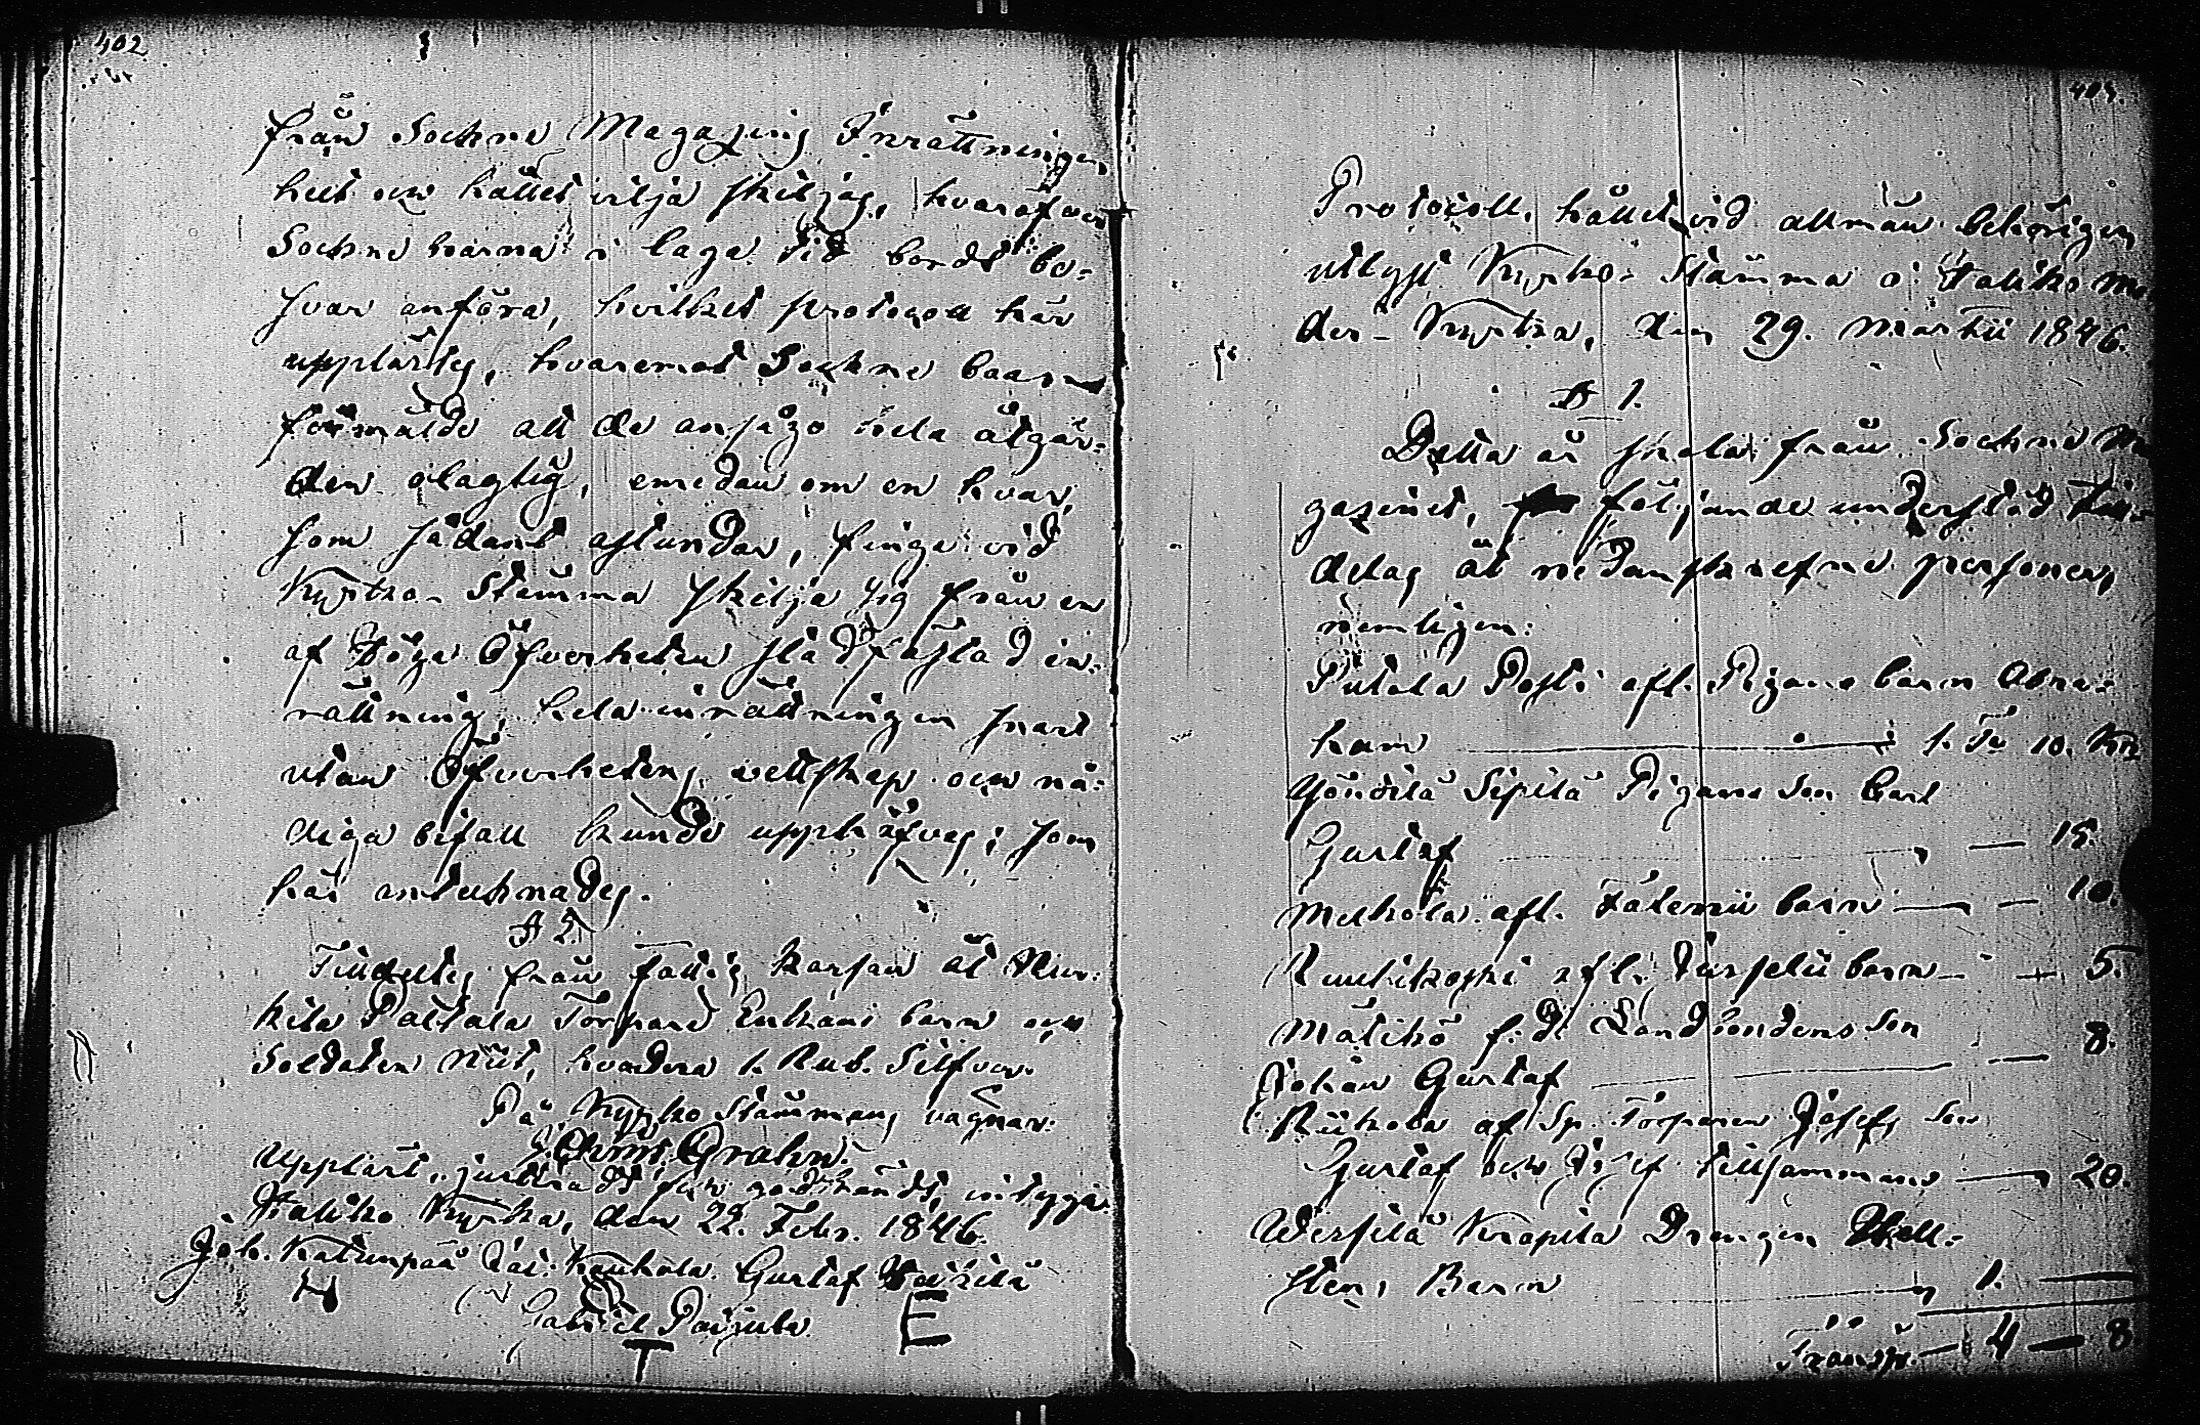 402
från Sockne Magazins Inrättningen
helt och hållet vilja skiljas, hvaröfver
Sockneboarna i laga tid borde be-
svär anföra, hvilket protocoll här
upplästes, hvaremot Sockne boarne
förmälde att de ansågo hela åtgär-
den olaglig, emedan om en hvar,
som sådant åstundar, finge vid
Kyrko-Stämma skilja sig från en
af Höga Öfverheten stadfästad in-
rättning, hela inrättningen snart
utan Öfverhetens vettskap och nå-
diga bifall kunde upphäfvas; som
här antecknades.
§ 2.
Tilldeltes från Fattig Kassan åt
kila Pattala Torpare barn och
Soldaten Nöt, hvardera 1. Rub. Silfver.
På Kyrko Stämmans vägnar:
Grahn.
Uppläst, justeradt och godkändt, intyga.
Halikko Kyrka, den 22. Febr. 1846.
Joh. Katumpää Kaukola. Gustaf
Gabriel
T E
403.
Protocoll, hållet vid allmän behörigen
utlyst Kyrko-Stämma i Halikko Mo-
der-Kyrka, den 29. Martii 1846.
§ 1.
Detta år skola från Sockne Ma-
gazinet, följande understöd till-
delas åt nedanskrefne personer,
nemligen:
Pitala Posti afl. Pigans barn Abra-
ham 1. Tu 10. Kr
Sipilä Pigans Son Carl
Gustaf — 15.
afl. barn — — 10.
afl. barn — — 5.
f. d. Landbondens Son
Johan Gustaf — 8.
af Sp. Torparen Josefs Son
Gustaf och Josef tillsammans — 20.
Drengen Hell-
stens Barn 1. —
Transp. — 4 — 8